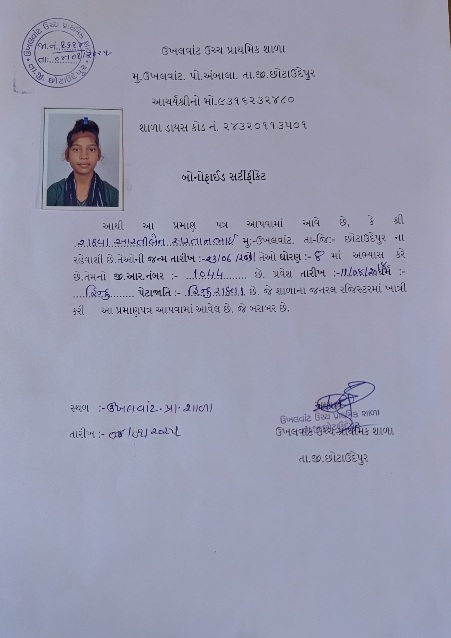 ઉખલવાંટ ઉચ્ચ પ્રાથમિક શાળા
મુ.ઉખલવાંટ. પો.અંબાલા. તા.જી.છોટાઉદેપુર
આચાર્યશ્રીનો મો.૯૩૧૬૨૩૨૪૮૦
શાળા ડાયસ કોડ નં. ૨૪૩૨૦૧૧૩૫૦૧
બોનોફાઈડ સર્ટીફીકેટ
આથી આ પ્રમાણ પત્ર આપવામાં આવે છે, કે શ્રી
રાઠવા મુ:-ઉખલવાંટ. તા-જિ:- છોટાઉદેપુર ના
રહેવાશી છે.તેઓની જન્મ તારીખ :- તેઓ ધોરણ :- 8 માં અભ્યાસ કરે
છે.તેમનો જી.આર.નંબર :- ...1044........ છે. પ્રવેશ તારીખ :-
....હિન્દુ........ પેટાજાતિ :- હિન્દુ રાઠવા છે. જે શાળાના જનરલ રજિસ્ટરમાં ખાત્રી
કરી આ પ્રમાણપત્ર આપવામાં આવેલ છે. જે ખરાબર છે.
સ્થળ :-ઉખલવાંટ.પ્રા. શાળા
તારીખ :-
ઉખલવાંટ ઉચ્ચ પ્રાથમિક શાળા
ઉખલવાંટ ઉચ્ચ પ્રાથમિક શાળા
તા.જી.છોટાઉદેપુર